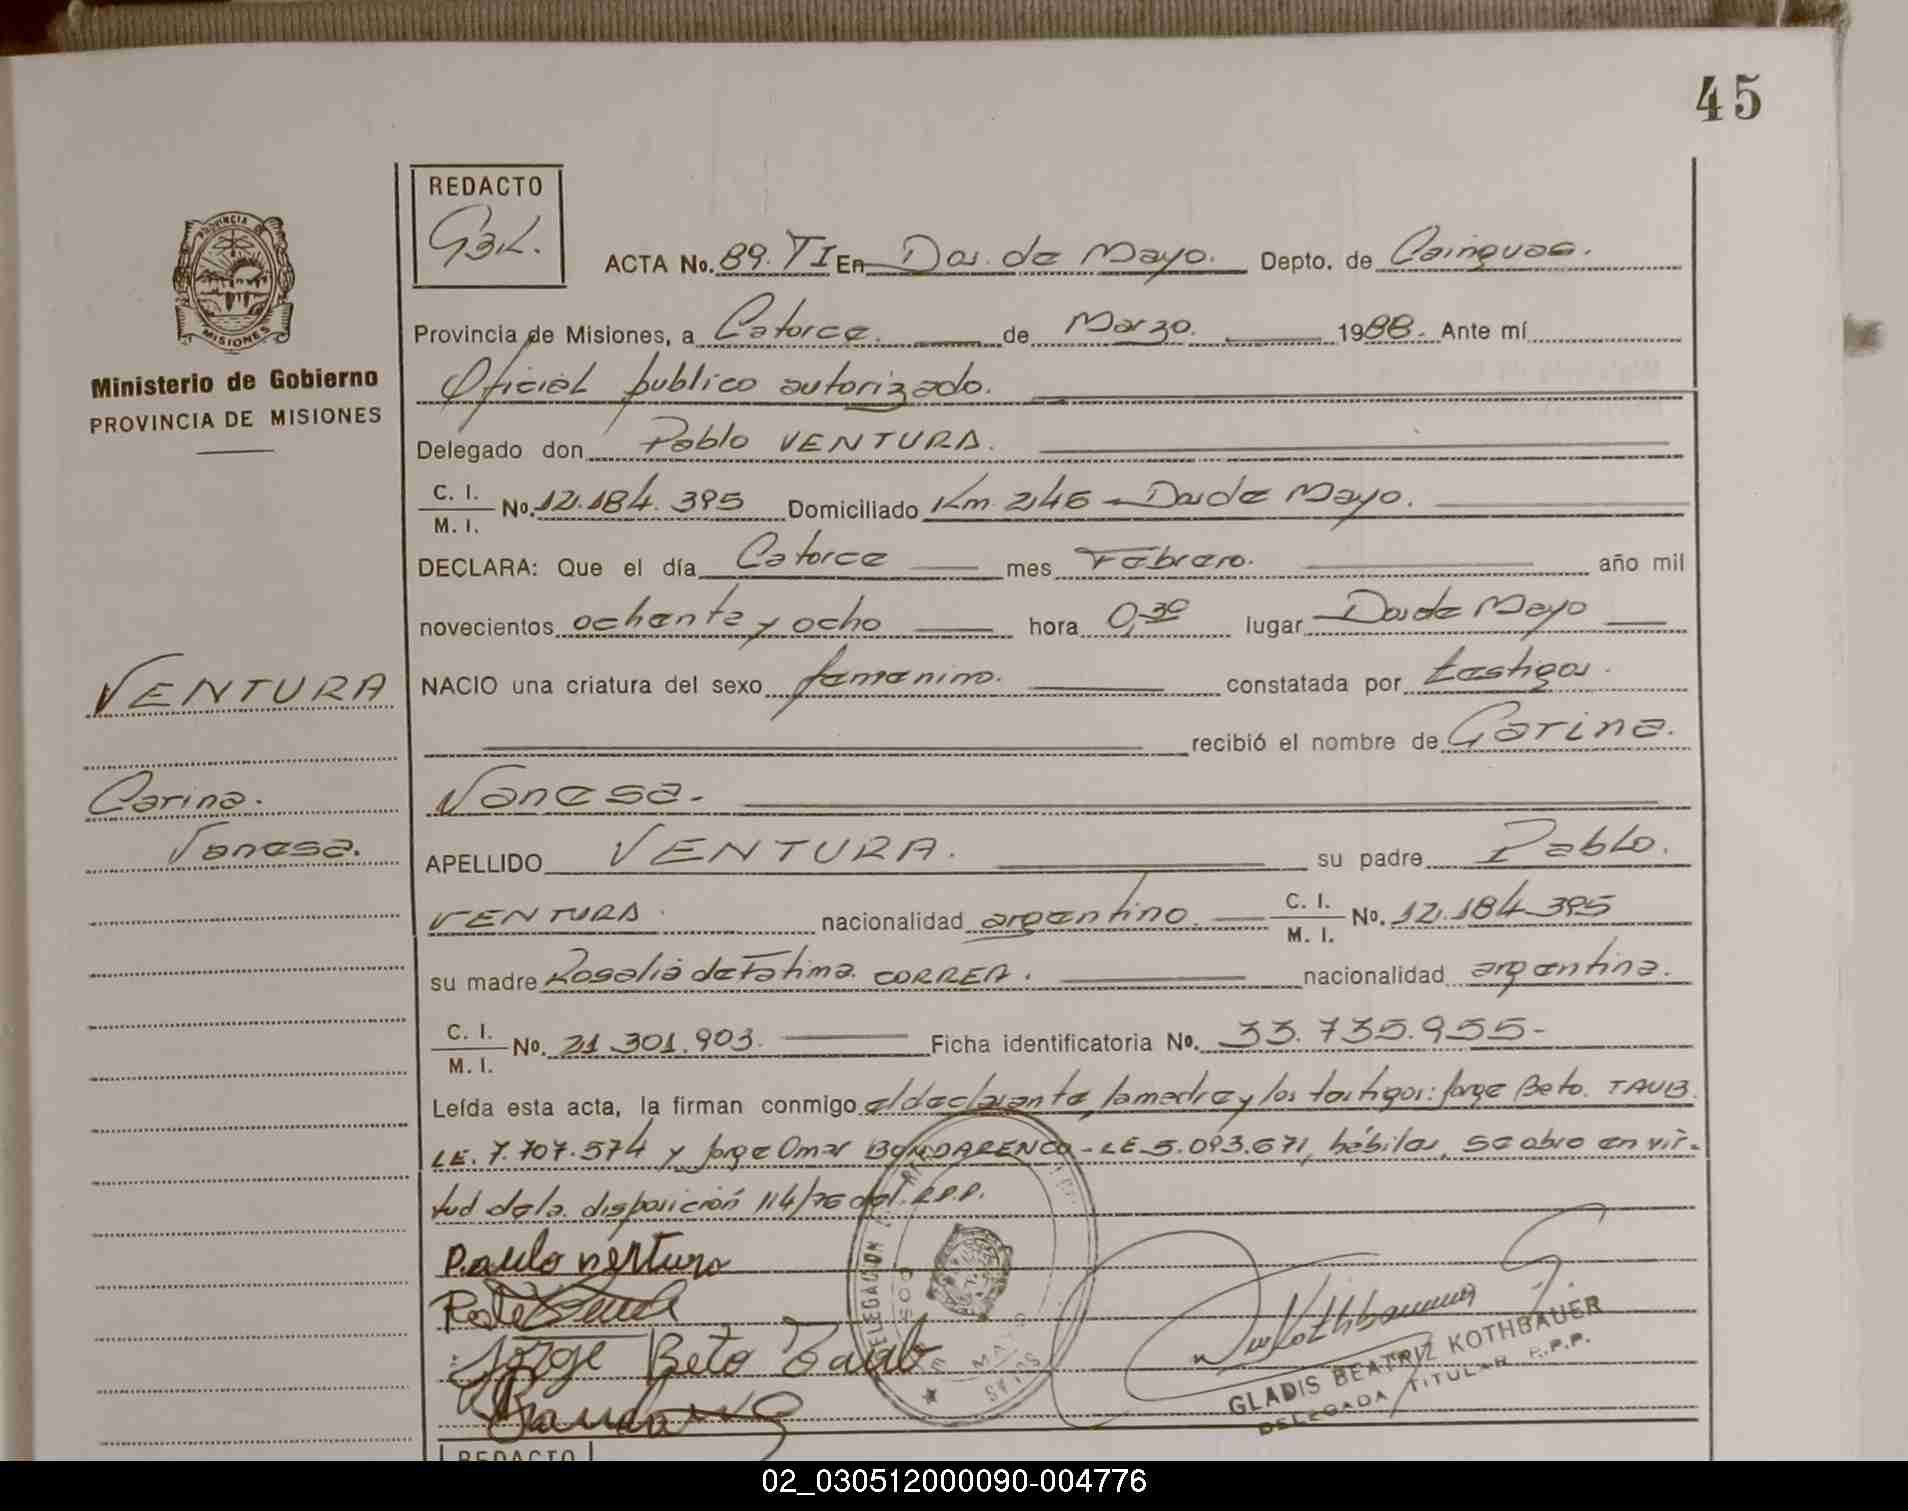 45
REDACTO
G3K.
ACTA No. 89. TI En Dos. de Mayo. Depto. de Cainguas.
PROVINCIA
MISIONES
Ministerio de Gobierno
PROVINCIA DE MISIONES
Provincia de Misiones, a Catorce. de Marzo. 1988. Ante mí
Oficial publico autorizado.
Delegado don Pablo VENTURA.
C. I.
M. I. No. 12.184.395 Domiciliado Km 246 - Dos de Mayo.
DECLARA: Que el día Catorce mes Febrero. año mil
novecientos ochenta y ocho hora 0,30 lugar Dos de Mayo
NACIO una criatura del sexo femenino. constatada por testigos.
recibió el nombre de Carina.
Vanesa.
VENTURA
Carina.
Vanesa.
APELLIDO VENTURA. su padre Pablo.
VENTURA. nacionalidad argentino. C. I.
M. I. No. 12.184.395
su madre Rosalia de Fatima. CORREA. nacionalidad argentina.
C. I.
M. I. No. 21.301.903. Ficha identificatoria No. 33.735.955-
Leída esta acta, la firman conmigo el declarante, la madre y los testigos: Jorge Beto. TAUB.
LE. 7.707.574 y Jorge Omar BONDARENCO - LE 5.093.671, hábiles, se abro en vir-
tud de la. disposición 114/76 del. R.P.P.
Paulo ventura
Jorge Beto Taub
DELEGACION
Kothbauer
GLADIS BEATRIZ KOTHBAUER
DELEGADA TITULAR R.P.P.
REDACTO
02_030512000090-004776